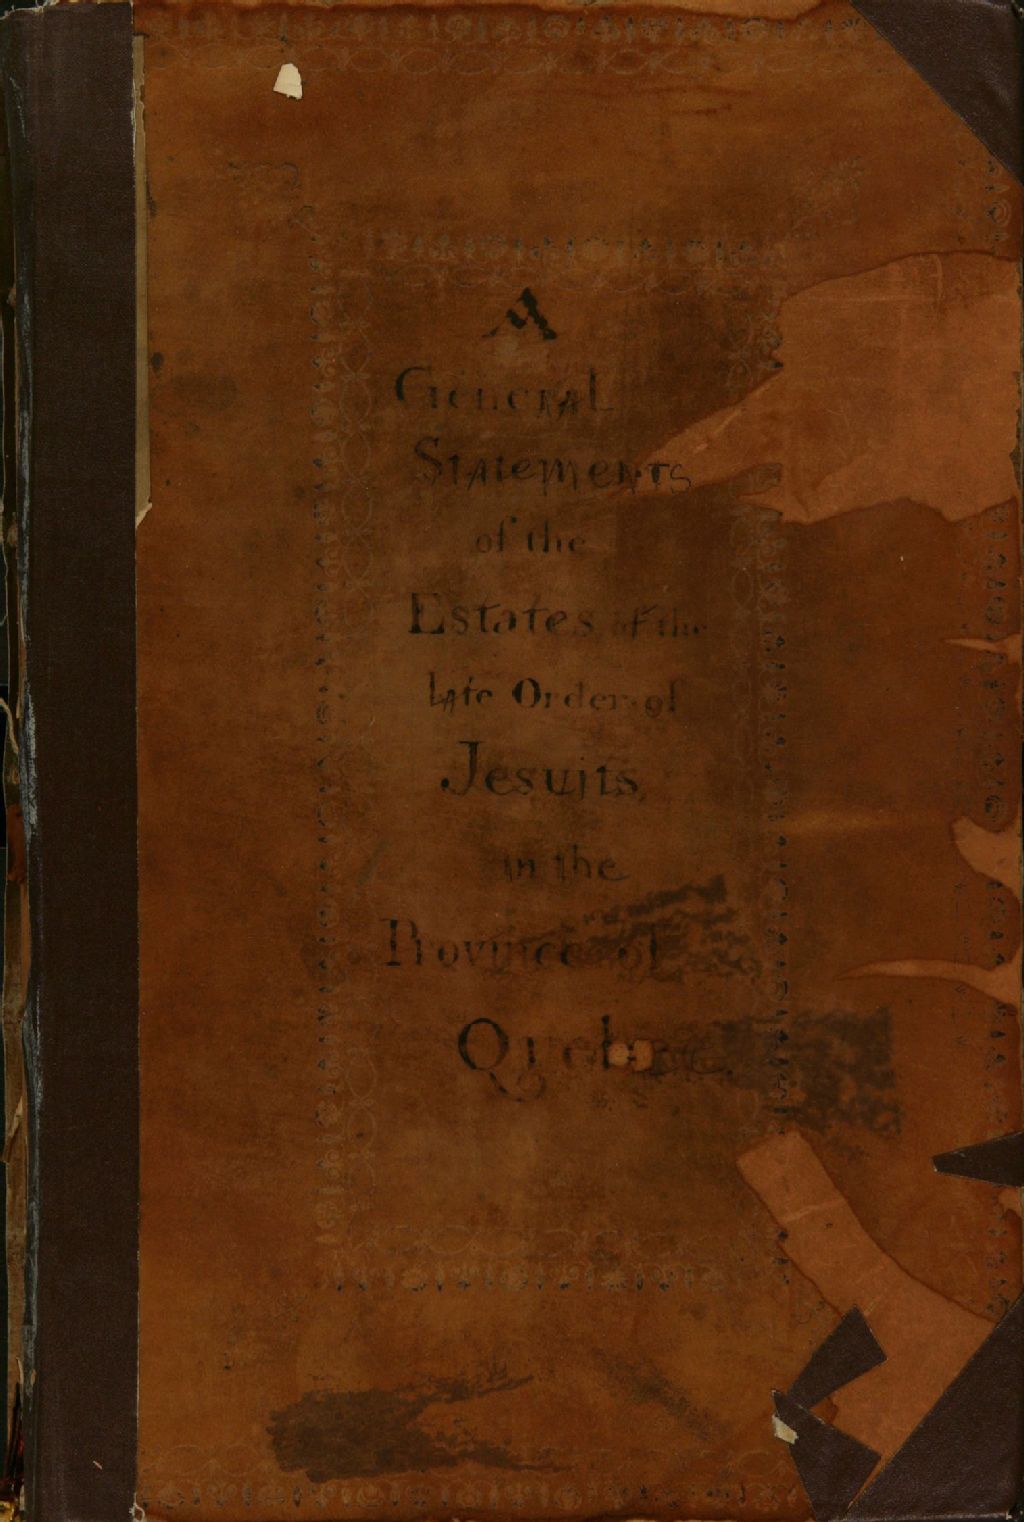 A
General
Statements
of the
Estates of the
late Order of
Jesuits,
in the
Province of
Quebec.